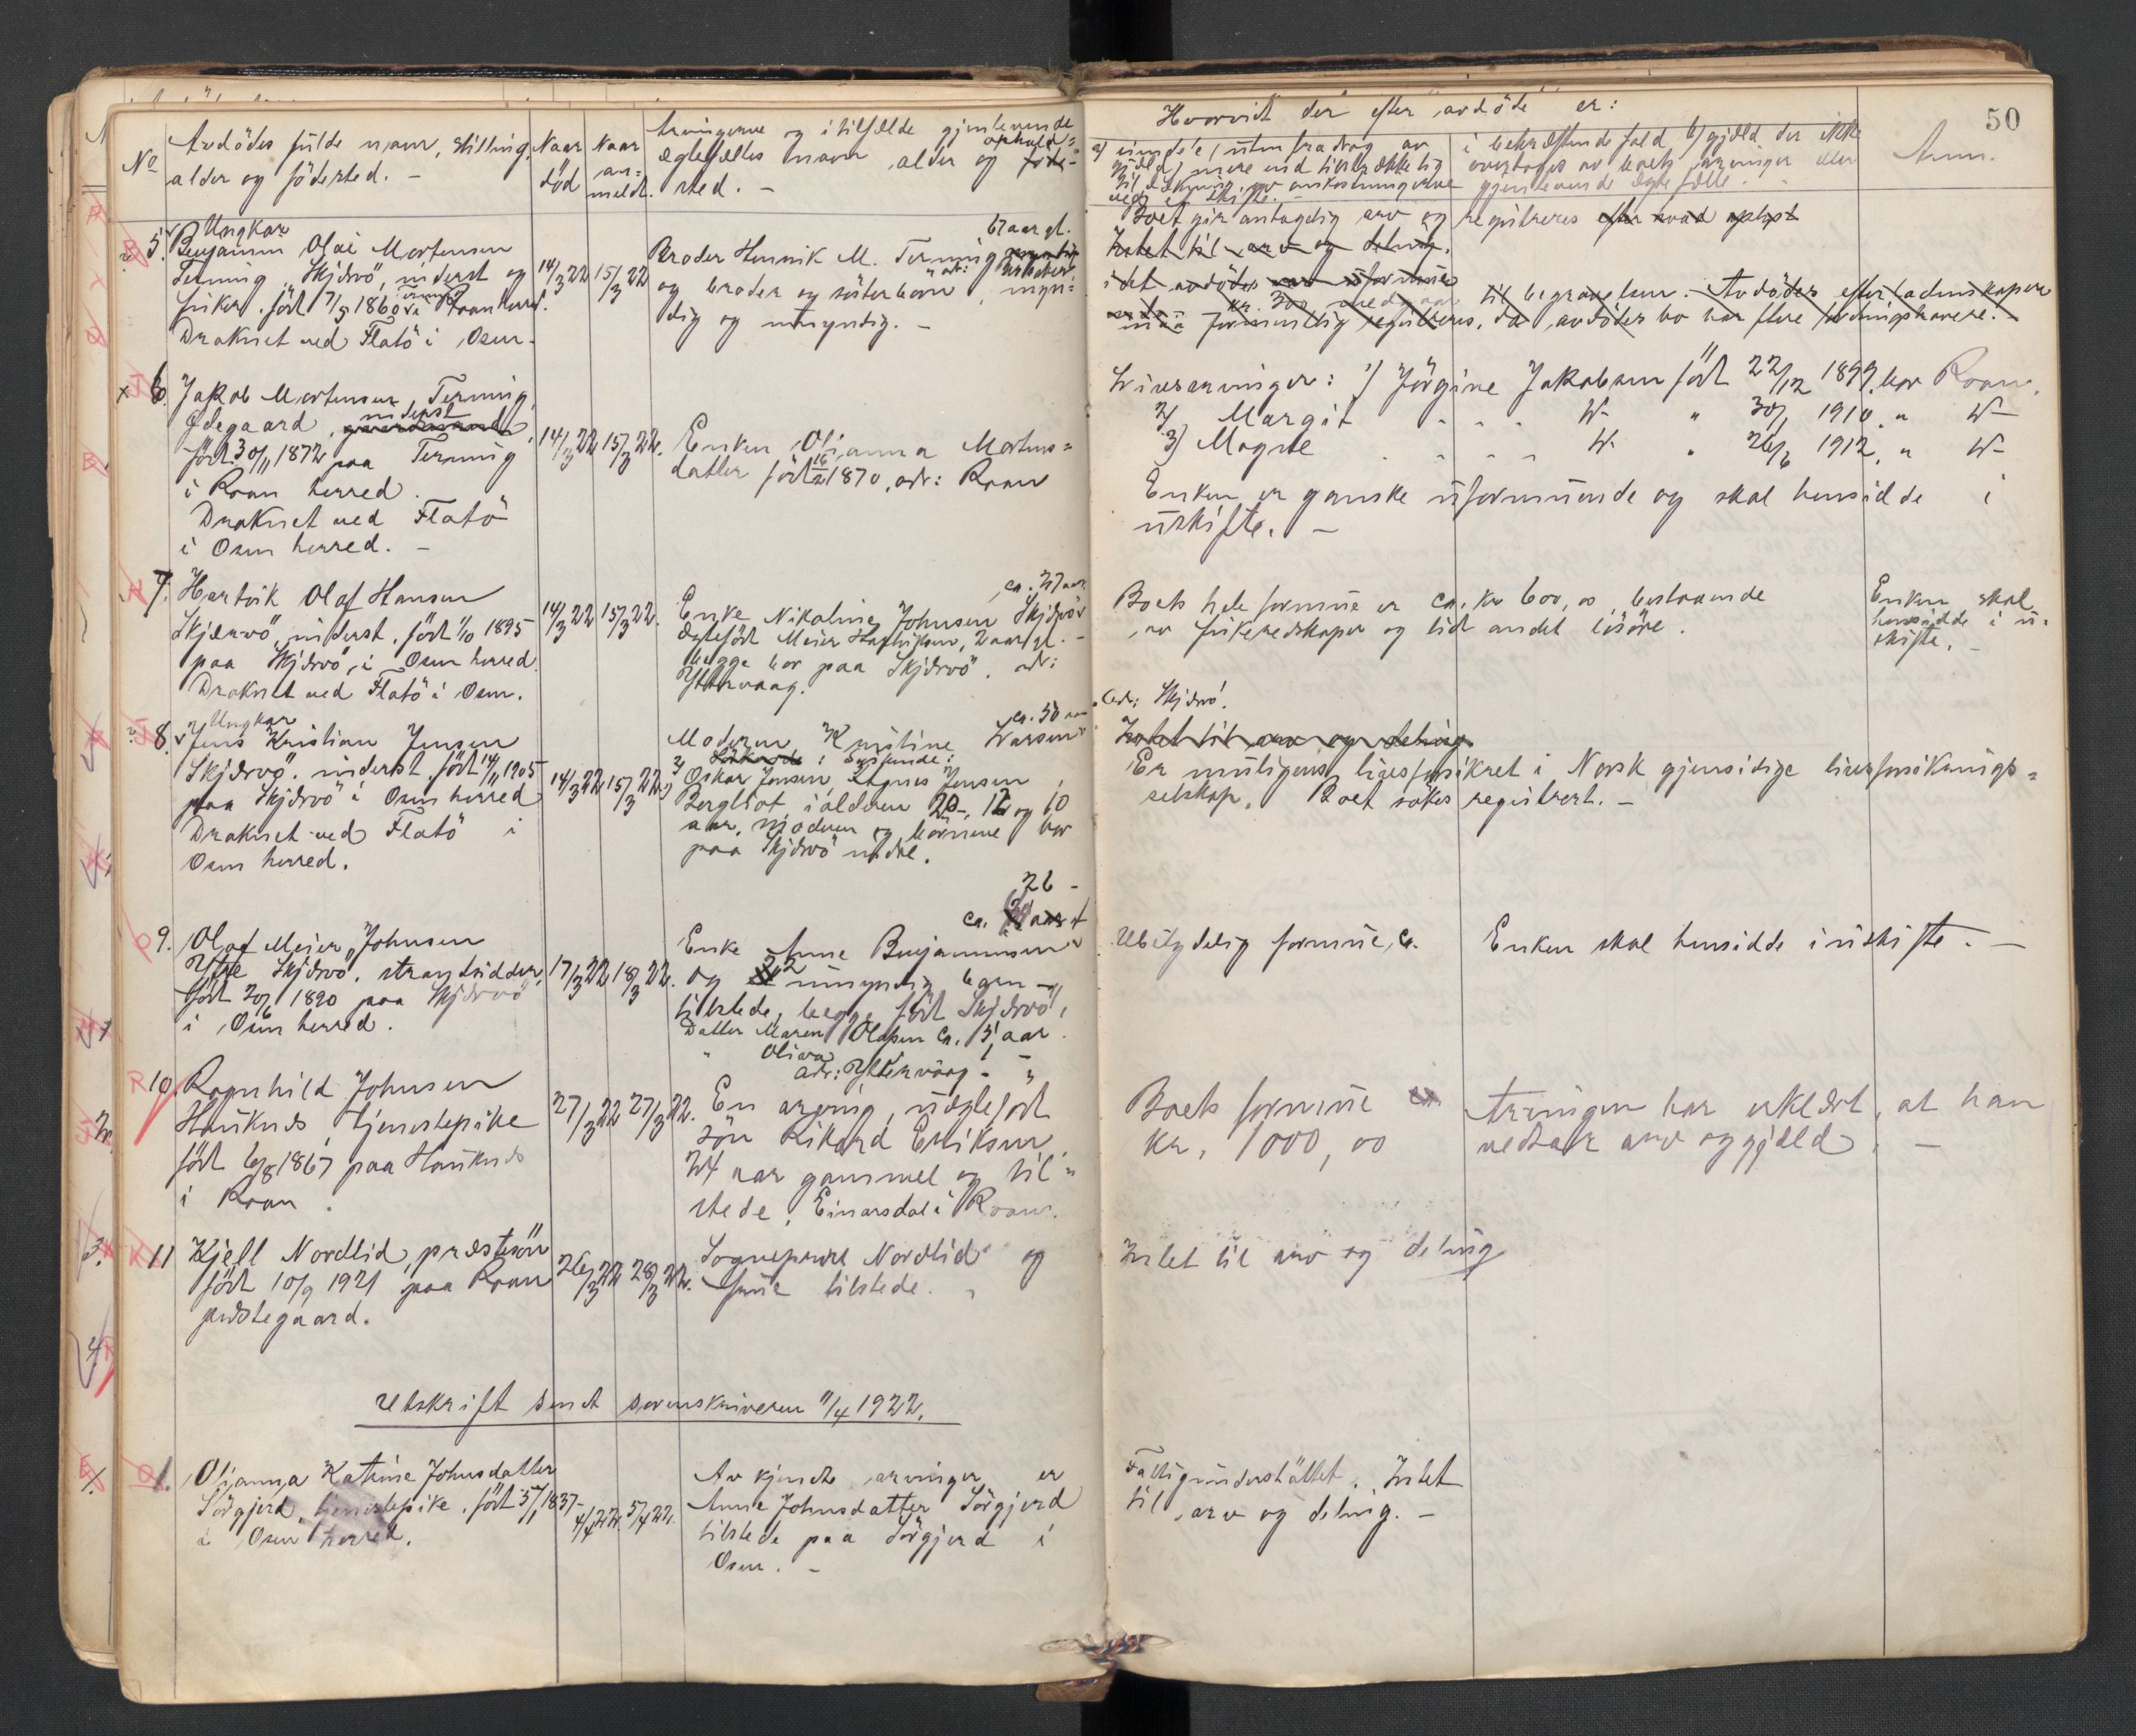 50
No
Avdödes fulde navn, stilling,
alder og födested. -
Naar
död
Naar
an-
meldt.
Arvingerne og i tilfælde gjenlevende
ægtefælles navn, alder og opholds-
sted. -
Hvorvidt der efter avdöde er:
a) midele, uten fradrag av
gjæld, mere end tilstrækkelig
til dækning av omkostningerne
ved et skifte. -
i bekræftende fald b) gjæld der ikke
overtages av boets arvinger eller
gjenlevende ægtefælle. -
Anm.
5. Ungkar
Benjamin Olai Mortensen
Terning, Skjærvö, inderst og
fisker. född 7/5 1860 i Roan herred.
Druknet ved Flatö i Osen.
14/3 22 15/3 22
67 aar gl.
Broder Henrik M. Terning
og broder og sösterbörn, myn-
dig og umyndig. -
Boet gir antagelig arv og registreres efter hvad oplyst
Intet til arv og deling,
idet avdödes var uformue
kr. 300 medgaar til begravelsen. Avdödes efterladenskaper
maa formentlig registreres, da avdödes bo har flere fordringshavere. -
6. Jakob Mortensen Terning,
Ødegaard, inderst gaardmand,
födt 30/11 1872 paa Terning
i Roan herred.
Druknet ved Flatö
i Osen herred. -
14/3 22 15/3 22.
Enken Olianna Mortens=
datter födt 16/2 1870, adr: Roan
Livsarvinger: 1) Jörgine Jakobsen födt 22/12 1899. bor Roan.
2) Margit - - - W- " 30/1 1910. " W-
3) Magne - - - - W. " 26/6 1912, " W-
Enken er ganske uformuende og skal hensidde i
uskifte. -
7. Hartvik Olaf Hansen
Skjærvö, inderst. födt 1/10 1895
paa Skjærvö, i Osen herred.
Druknet ved Flatö i Osen.
14/3 22 15/3 22.
ca. 27 aar
Enke Nikoline Johnsen Skjærvö
Ægtefödt Meier Hartviksen, 2 aar gl. -
begge bor paa Skjærvö. adr:
Yttervaag.
Boets hele formue er ca. kr 600,00 bestaaende
av fiskeredskaper og lidt andet lösöre.
Enken skal
hensidde i u-
skifte. -
8. Ungkar
Jens Kristian Jensen
Skjærvö. inderst. födt 14/11 1905
paa Skjærvö i Osen herred
Druknet ved Flatö i
Osen herred.
14/3 22 15/3 22.
ca. 50 aar
Moderen Kristine Larsen
Söskende:
Oskar Jensen, Agnes Jensen,
Bergliot i alderen 20, 12 og 10
aar, moderen og börnene bor
paa Skjærvö
adr: Skjærvö.
Intet til arv og deling
Er muligens livsforsikret i Norsk gjensidige livsforsikrings=
selskap. Boet sökes registrert. -
9. Olaf Meier Johnsen
Ytre Skjærvö. strandsidder,
födt 20/6 1890 paa Skjærvö
i Osen herred.
17/3 22 18/3 22.
26 -
ca. aar
Enke Anne Benjaminsen
og 2 umyndig barn -
tilstede, begge födt Skjærvö,
Datter Maren Olafsen ca. 5 aar.
" Oliva 1 -
adr: Yttervaag - "
Ubetydelig formue,
Enken skal hensidde i uskifte. -
10. Ragnhild Johnsen
Hauknes, tjenestepike
födt 6/8 1867 paa Hauknes
i Roan.
27/3 22 27/3 22.
En arving, uægtefödt
sön Rikard Eriksen,
24 aar gammel og til=
stede, Einarsdal i Roan.
Boets formue
kr. 1000,00
Arvingen har erklært, at han
vedtar arv og gjæld. -
11 Kjell Nordlid, prestesön
födt 10/9 1921 paa Roan
prestegaard.
26/3 22 28/3 22.
Sogneprest Nordlid og
frue tilstede.
Intet til arv og deling
Utskrift sendt sorenskriveren 11/4 1922.
1. Olianna Katrine Johnsdatter
Sörgjerd, tjenestepike. födt 5/1 1837
i Osen herred.
4/4 22. 5/4 22.
Av kjendte arvinger er
Anne Johnsdatter Sörgjerd
tilstede paa Sörgjerd i
Osen. -
Fattigunderstöttet. Intet
til arv og deling. -